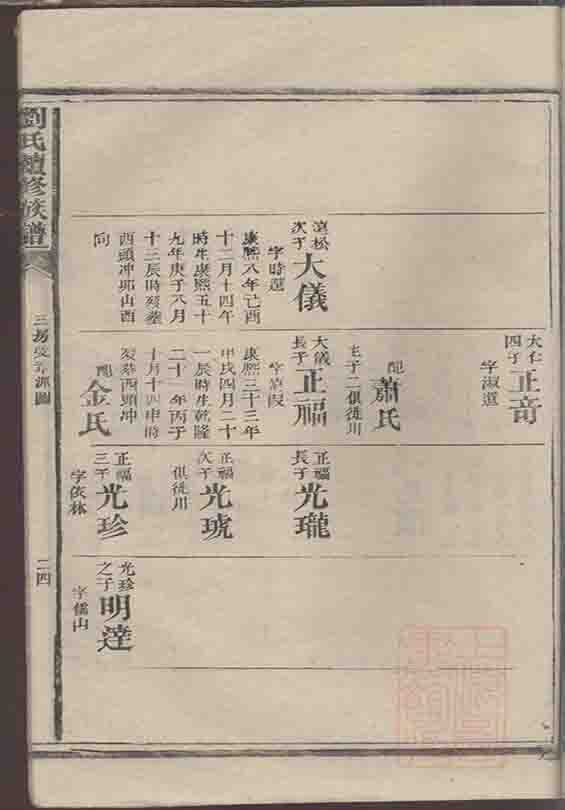 劉氏續修族譜
三房
二四
大仁
四子
正音
字淑選
配
蕭氏
生子二俱徙川
遠松
次子
大儀
字時選
康熙八年己酉
十二月十四午
時生康熙五十
九年庚子八月
十三辰時歿葬
酉頭冲卯山酉
向
大儀
長子
正福
康熙三十三年
甲戌四月二十
一辰時生乾隆
二十一年丙子
十月十四申時
歿葬酉頭冲
配
金氏
正福
長子
光瓏
正福
次子
光琥
俱徙川
正福
三子
光珍
字依林
光珍
之子
明達
字儒山